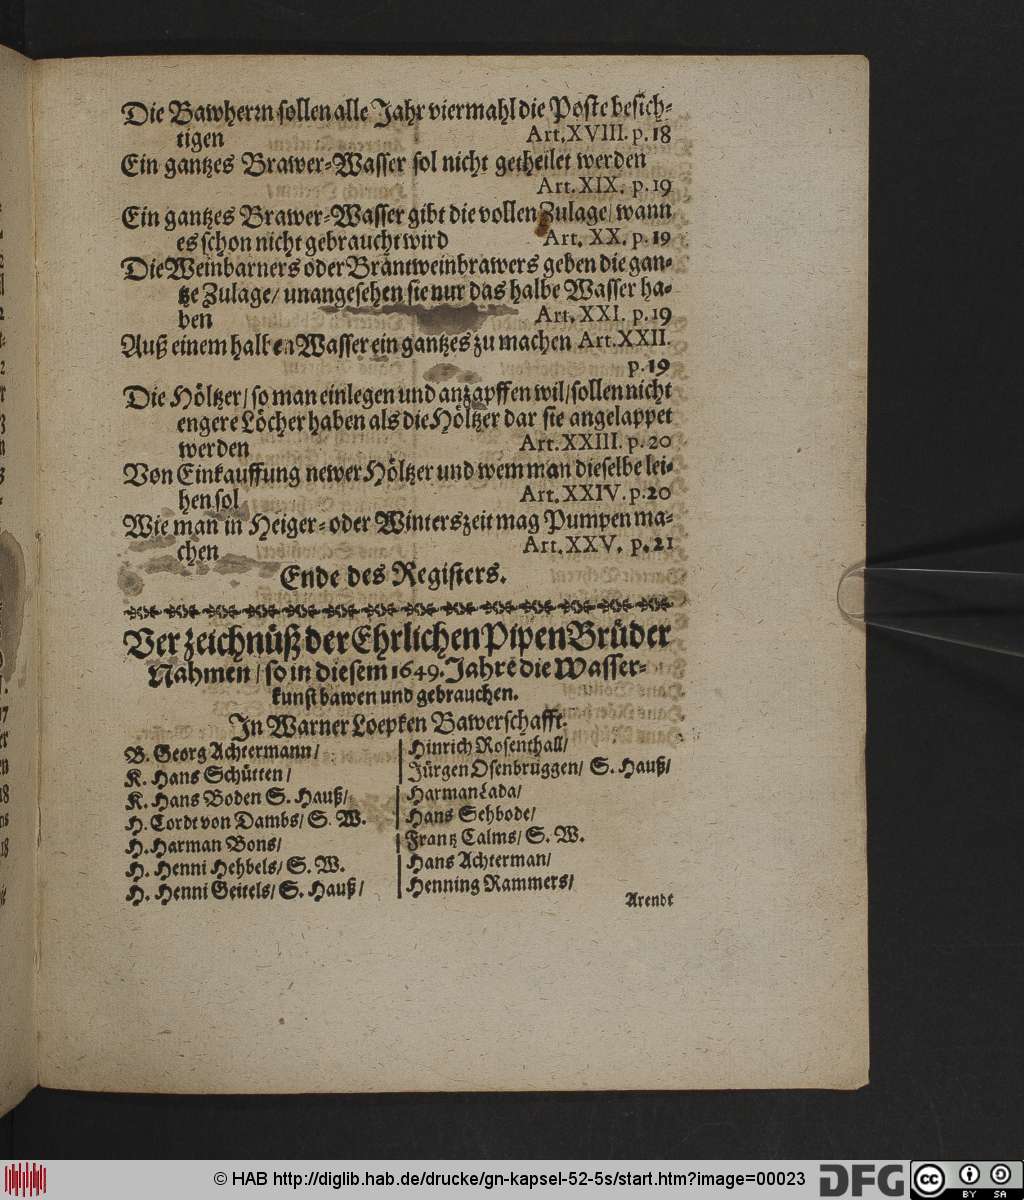 Die Bawherrn sollen alle Jahr viermahl die Poste besich-
tigen Art. XVIII. p. 18
Ein gantzes Brawer-Wasser sol nicht getheilet werden
Art. XIX. p. 19
Ein gantzes Brawer-Wasser gibt die vollen Zulage/ wann
es schon nicht gebraucht wird Art. XX. p. 19
Die Weinbarners oder Bräntweinbrawers geben die gan-
tze Zulage/ unangesehen sie nur das halbe Wasser ha-
ben Art. XXI. p. 19
Auß einem halben Wasser ein gantzes zu machen Art. XXII.
p. 19
Die Höltzer/ so man einlegen und anzapffen wil/ sollen nicht
engere Löcher haben als die Höltzer dar sie angelappet
werden Art. XXIII. p. 20
Von Einkauffung newer Höltzer und wem man dieselbe lei-
hen sol Art. XXIV. p. 20
Wie man in Heiger- oder Winterszeit mag Pumpen ma-
chen Art. XXV. p. 21
Ende des Registers.
Verzeichnüß der Ehrlichen Pipen Brüder
Nahmen/ so in diesem 1649. Jahre die Wasser-
kunst bawen und gebrauchen.
In Warner Loepken Bawerschafft.
B. Georg Achtermann/
K. Hans Schütten/
K. Hans Boden S. Hauß/
H. Cordt von Dambs/ S. W.
H. Harman Bons/
H. Henni Hehbels/ S. W.
H. Henni Geitels/ S. Hauß/
Hinrich Rosenthall/
Jürgen Osenbruggen/ S. Hauß/
Harman Lada/
Hans Sehbode/
Frantz Calms/ S. W.
Hans Achterman/
Henning Rammers/
Arendt
© HAB http://diglib.hab.de/drucke/gn-kapsel-52-5s/start.htm?image=00023
DFG
cc BY SA